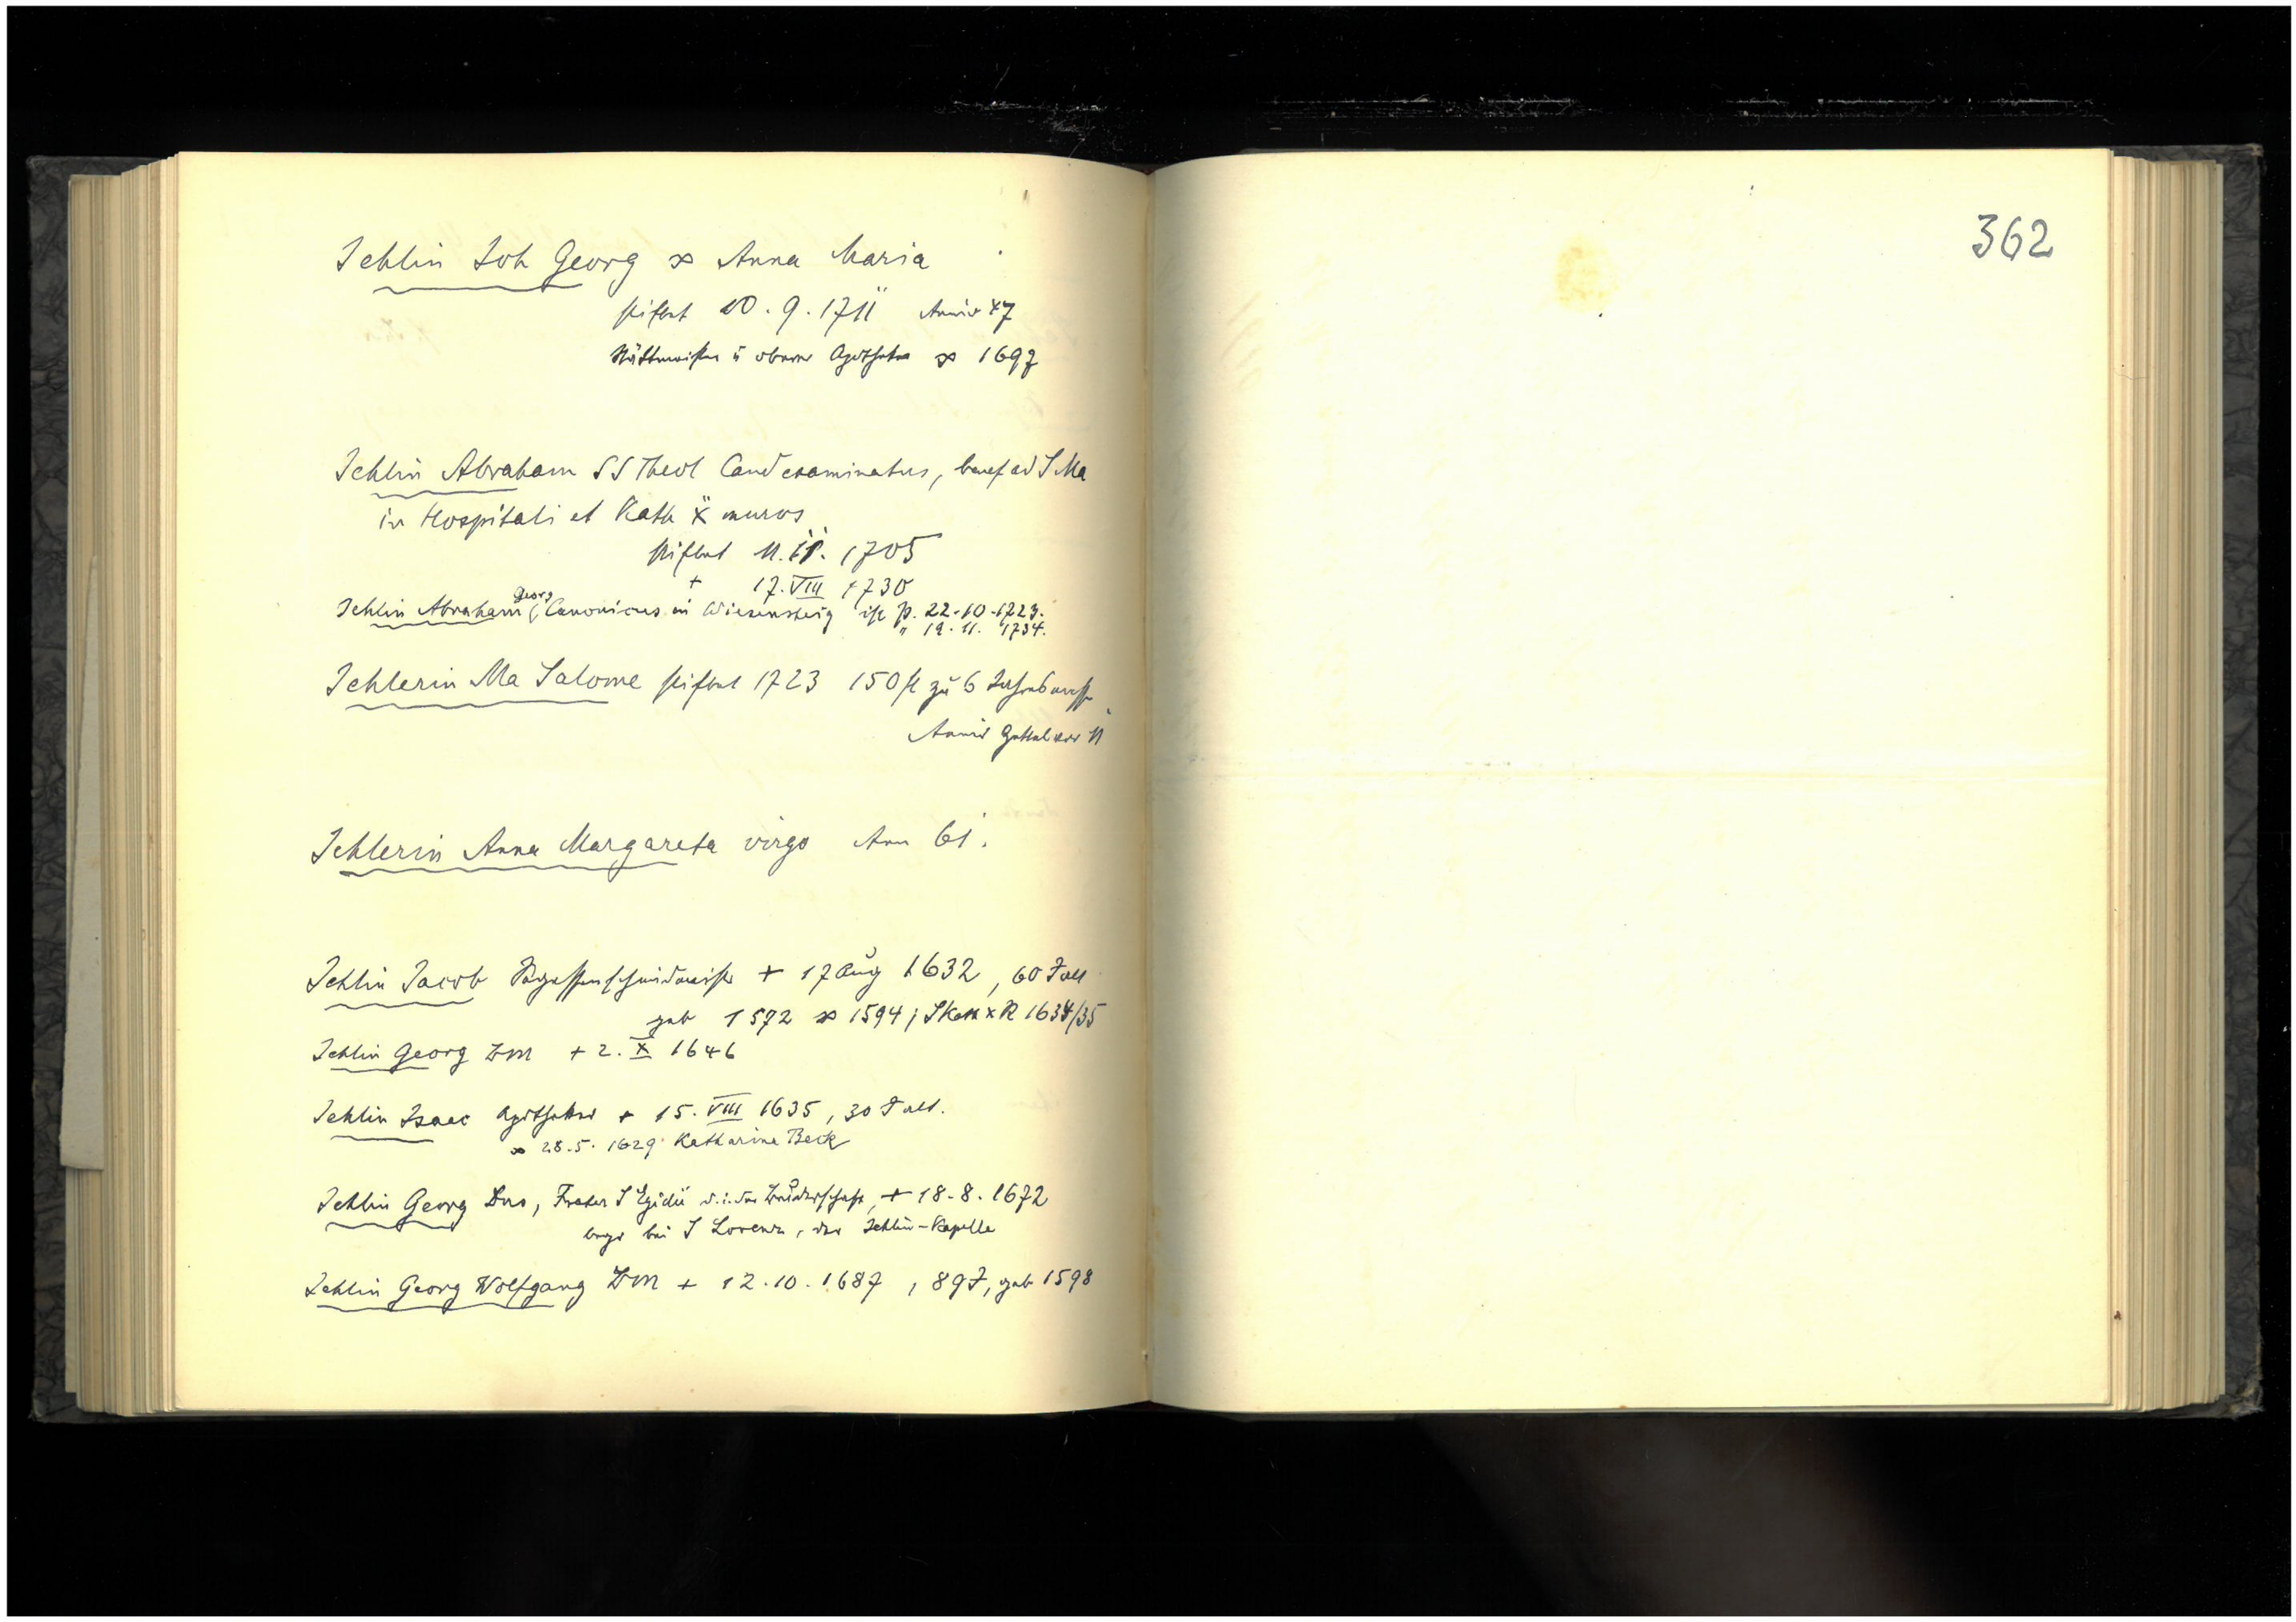 Jehlin Joh Georg ∞ Anna Maria
stiftet 10.9.1711 Anniv 47
Stättmeister u oberer Apotheker ∞ 1697
Jehlin Abraham SS Theol Cand examinatus, benef ad S Ma
in Hospitali et Kath X muros
stiftet 11. 1705
+ 17. VIII 1730
Jehlin Abraham Georg, Canonicus in Wiesensteig ist P. 22.10.1723.
" 19.11. 1734.
Jehlerin Ma Salome stiftet 1723 150 fl zu 6
Anniv 11
Jehlerin Anna Margareta virgo Ann 61.
Jehlin Jacob + 17 Aug 1632, 60 J alt
geb 1572 ∞ 1594; S Kath x R 1634/35
Jehlin Georg BM + 2. X 1646
Jehlin Isaac Apotheker + 15. VIII 1635, 30 J alt.
∞ 28.5.1629 Katharina Beck
Jehlin Georg Dns, Frater S Egidii d.i. der Bruderschaft, + 18.8.1672
begr bei S Lorenz, der Jehlin-Kapelle
Jehlin Georg Wolfgang BM + 12.10.1687, 89 J, geb 1598
362